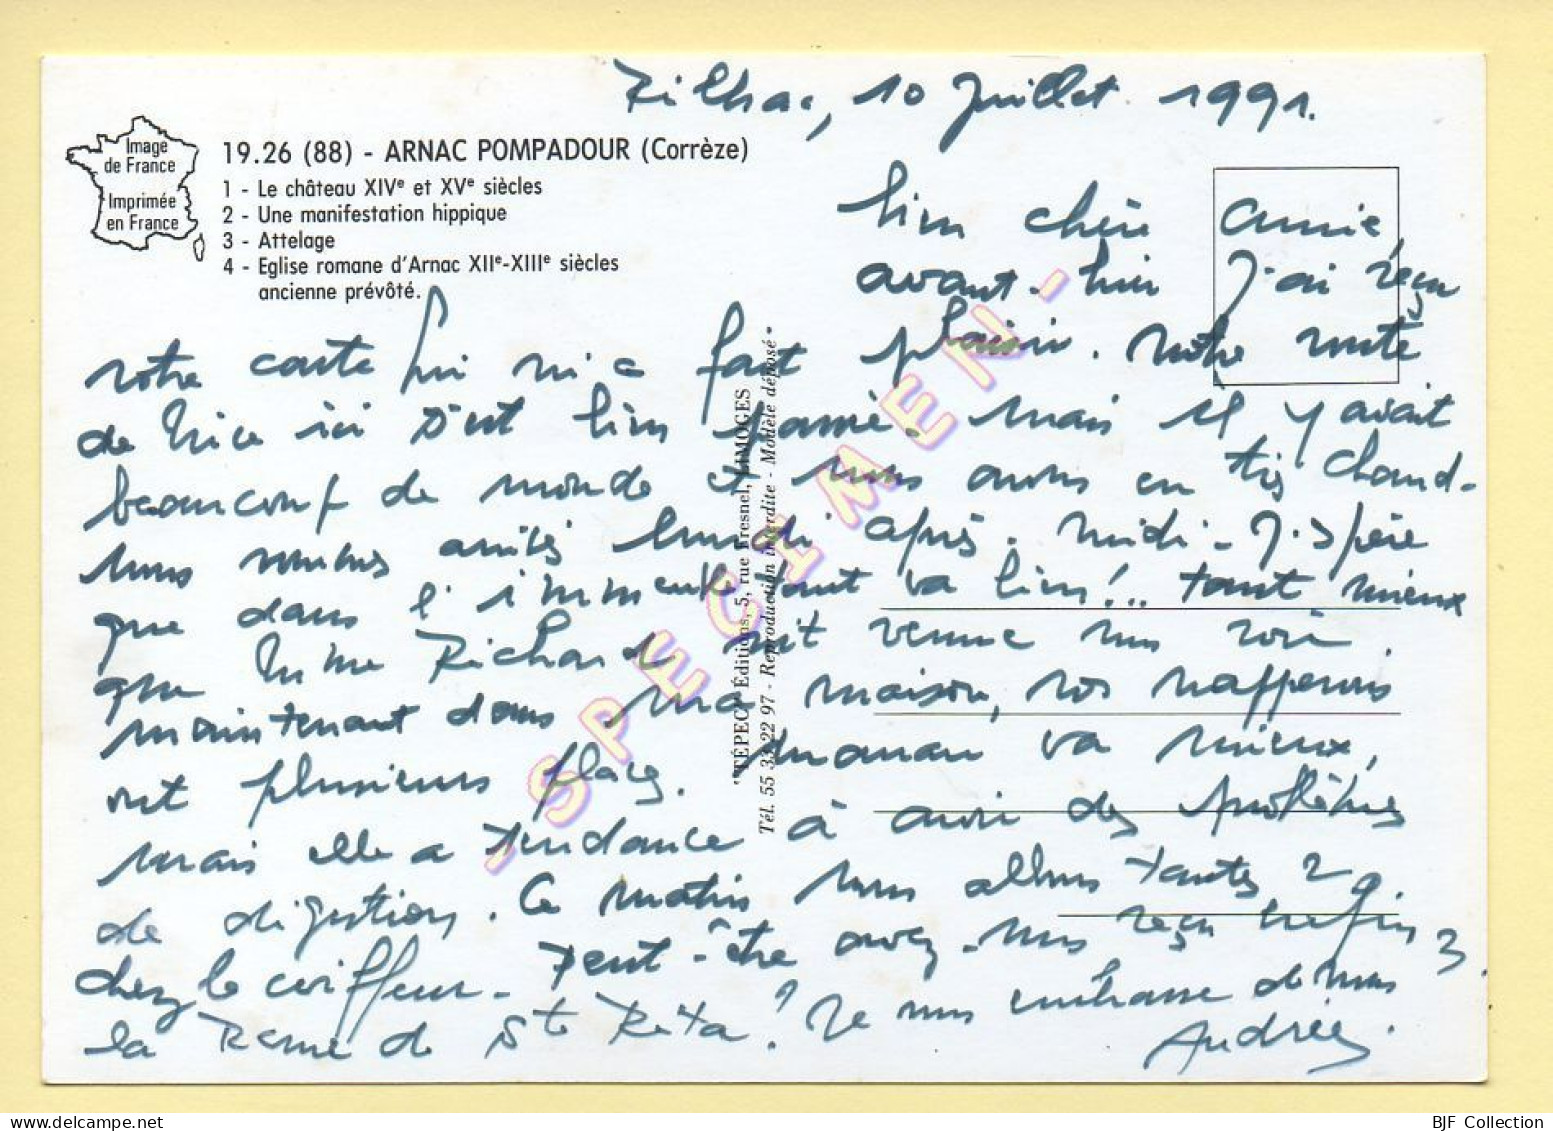 Rilhac, 10 Juillet 1991.
Image
de France
Imprimée
en France
19.26 (88) - ARNAC POMPADOUR (Corrèze)
1 - Le château XIVe et XVe siècles
2 - Une manifestation hippique
3 - Attelage
4 - Eglise romane d'Arnac XIIe-XIIIe siècles
ancienne prévôté.
bien chère Annie,
avant-hier j'ai reçu
votre carte qui m'a fait plaisir. Notre route
de Nice ici s'est bien passée. Mais il y avait
beaucoup de monde et nous avons eu très chaud.
Nous sommes arrivés lundi après-midi. J'espère
que dans l'immeuble tout va bien!.. tant mieux
que Mme Richard soit venue vous voir.
Maintenant dans ma maison, vos napperons
ont plusieurs places. Maman va mieux,
mais elle a tendance à avoir des problèmes
de digestion. Ce matin nous allons toutes 2
chez le coiffeur. Peut-être avez-vous reçu
la Revue de Ste Rita? Je vous embrasse de nous 3.
Andrée.
"TÉPECP" Éditions, 5, rue Fresnel, LIMOGES
Tél. 55 33 22 97 - Reproduction interdite - Modèle déposé
- SPECIMEN -
BJF Collection